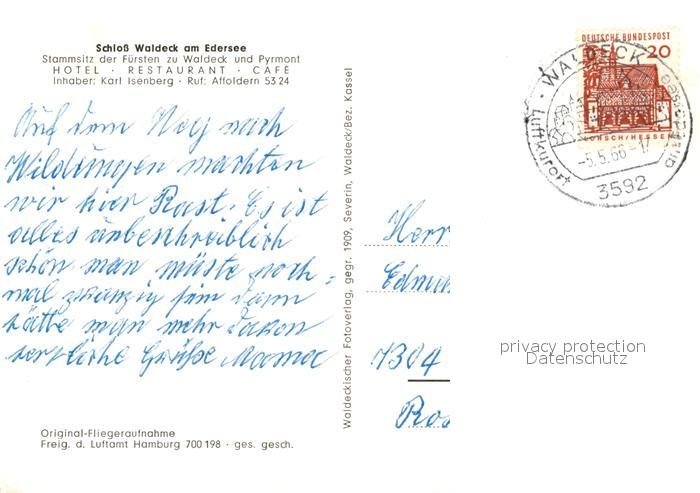 Schloß Waldeck am Edersee
Stammsitz der Fürsten zu Waldeck und Pyrmont
HOTEL · RESTAURANT · CAFÉ
Inhaber: Karl Isenberg · Ruf: Affoldern 53 24
Auf dem Weg nach
Wildungen machten
wir hier Rast. Es ist
alles unbeschreiblich
schön man müste noch=
mal zwanzig sein dann
hätte man mehr davon
herzliche Grüße Mama
Original-Fliegeraufnahme
Freig. d. Luftamt Hamburg 700 198 · ges. gesch.
Waldeckischer Fotoverlag, gegr. 1909, Severin, Waldeck/Bez. Kassel
DEUTSCHE BUNDESPOST
20
LORSCH/HESSEN
· WALDECK
Luftkurort
-5.5.66-17
3592
Herr
Edmu
privacy protection
Datenschutz